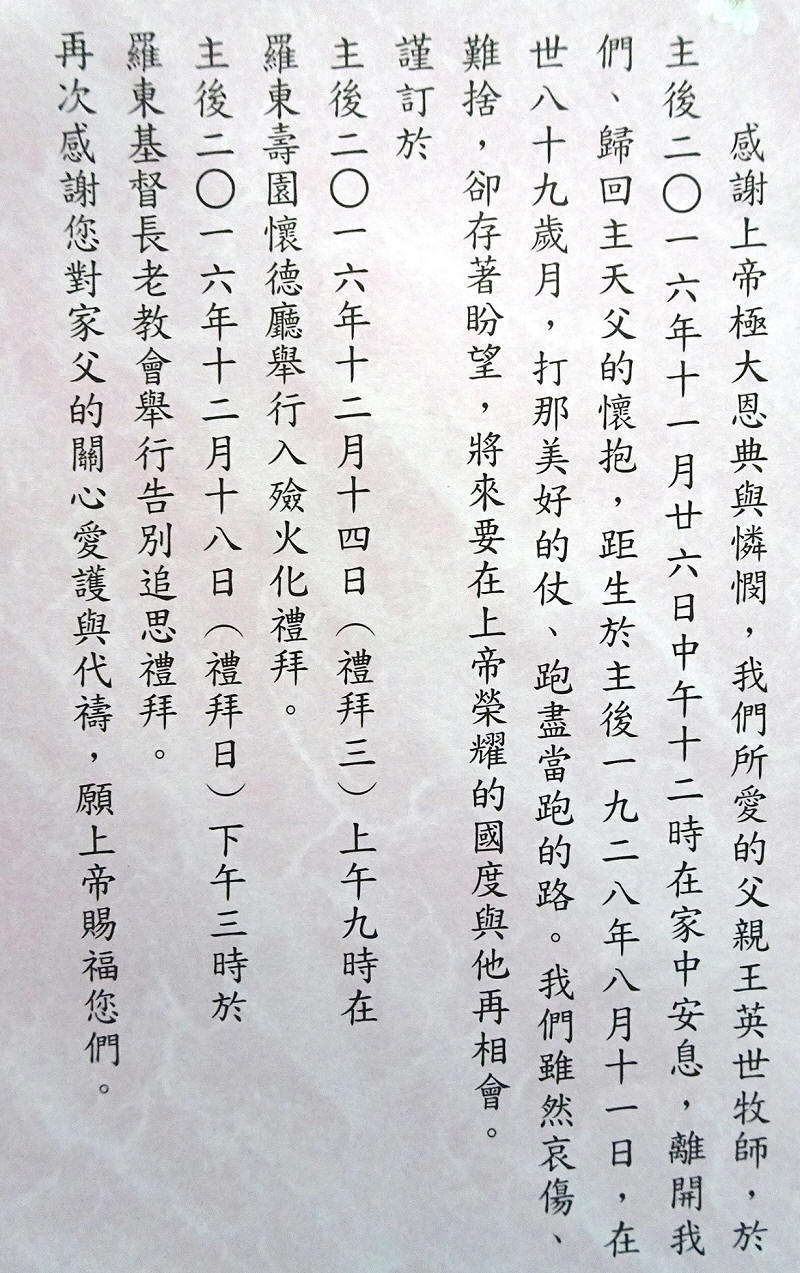 感謝上帝極大恩典與憐憫，我們所愛的父親王英世牧師，於
主後二〇一六年十一月廿六日中午十二時在家中安息，離開我
們、歸回主天父的懷抱，距生於主後一九二八年八月十一日，在
世八十九歲月，打那美好的仗、跑盡當跑的路。我們雖然哀傷、
難捨，卻存著盼望，將來要在上帝榮耀的國度與他再相會。
謹訂於
主後二〇一六年十二月十四日（禮拜三）上午九時在
羅東壽園懷德廳舉行入殮火化禮拜。
主後二〇一六年十二月十八日（禮拜日）下午三時於
羅東基督長老教會舉行告別追思禮拜。
再次感謝您對家父的關心愛護與代禱，願上帝賜福您們。